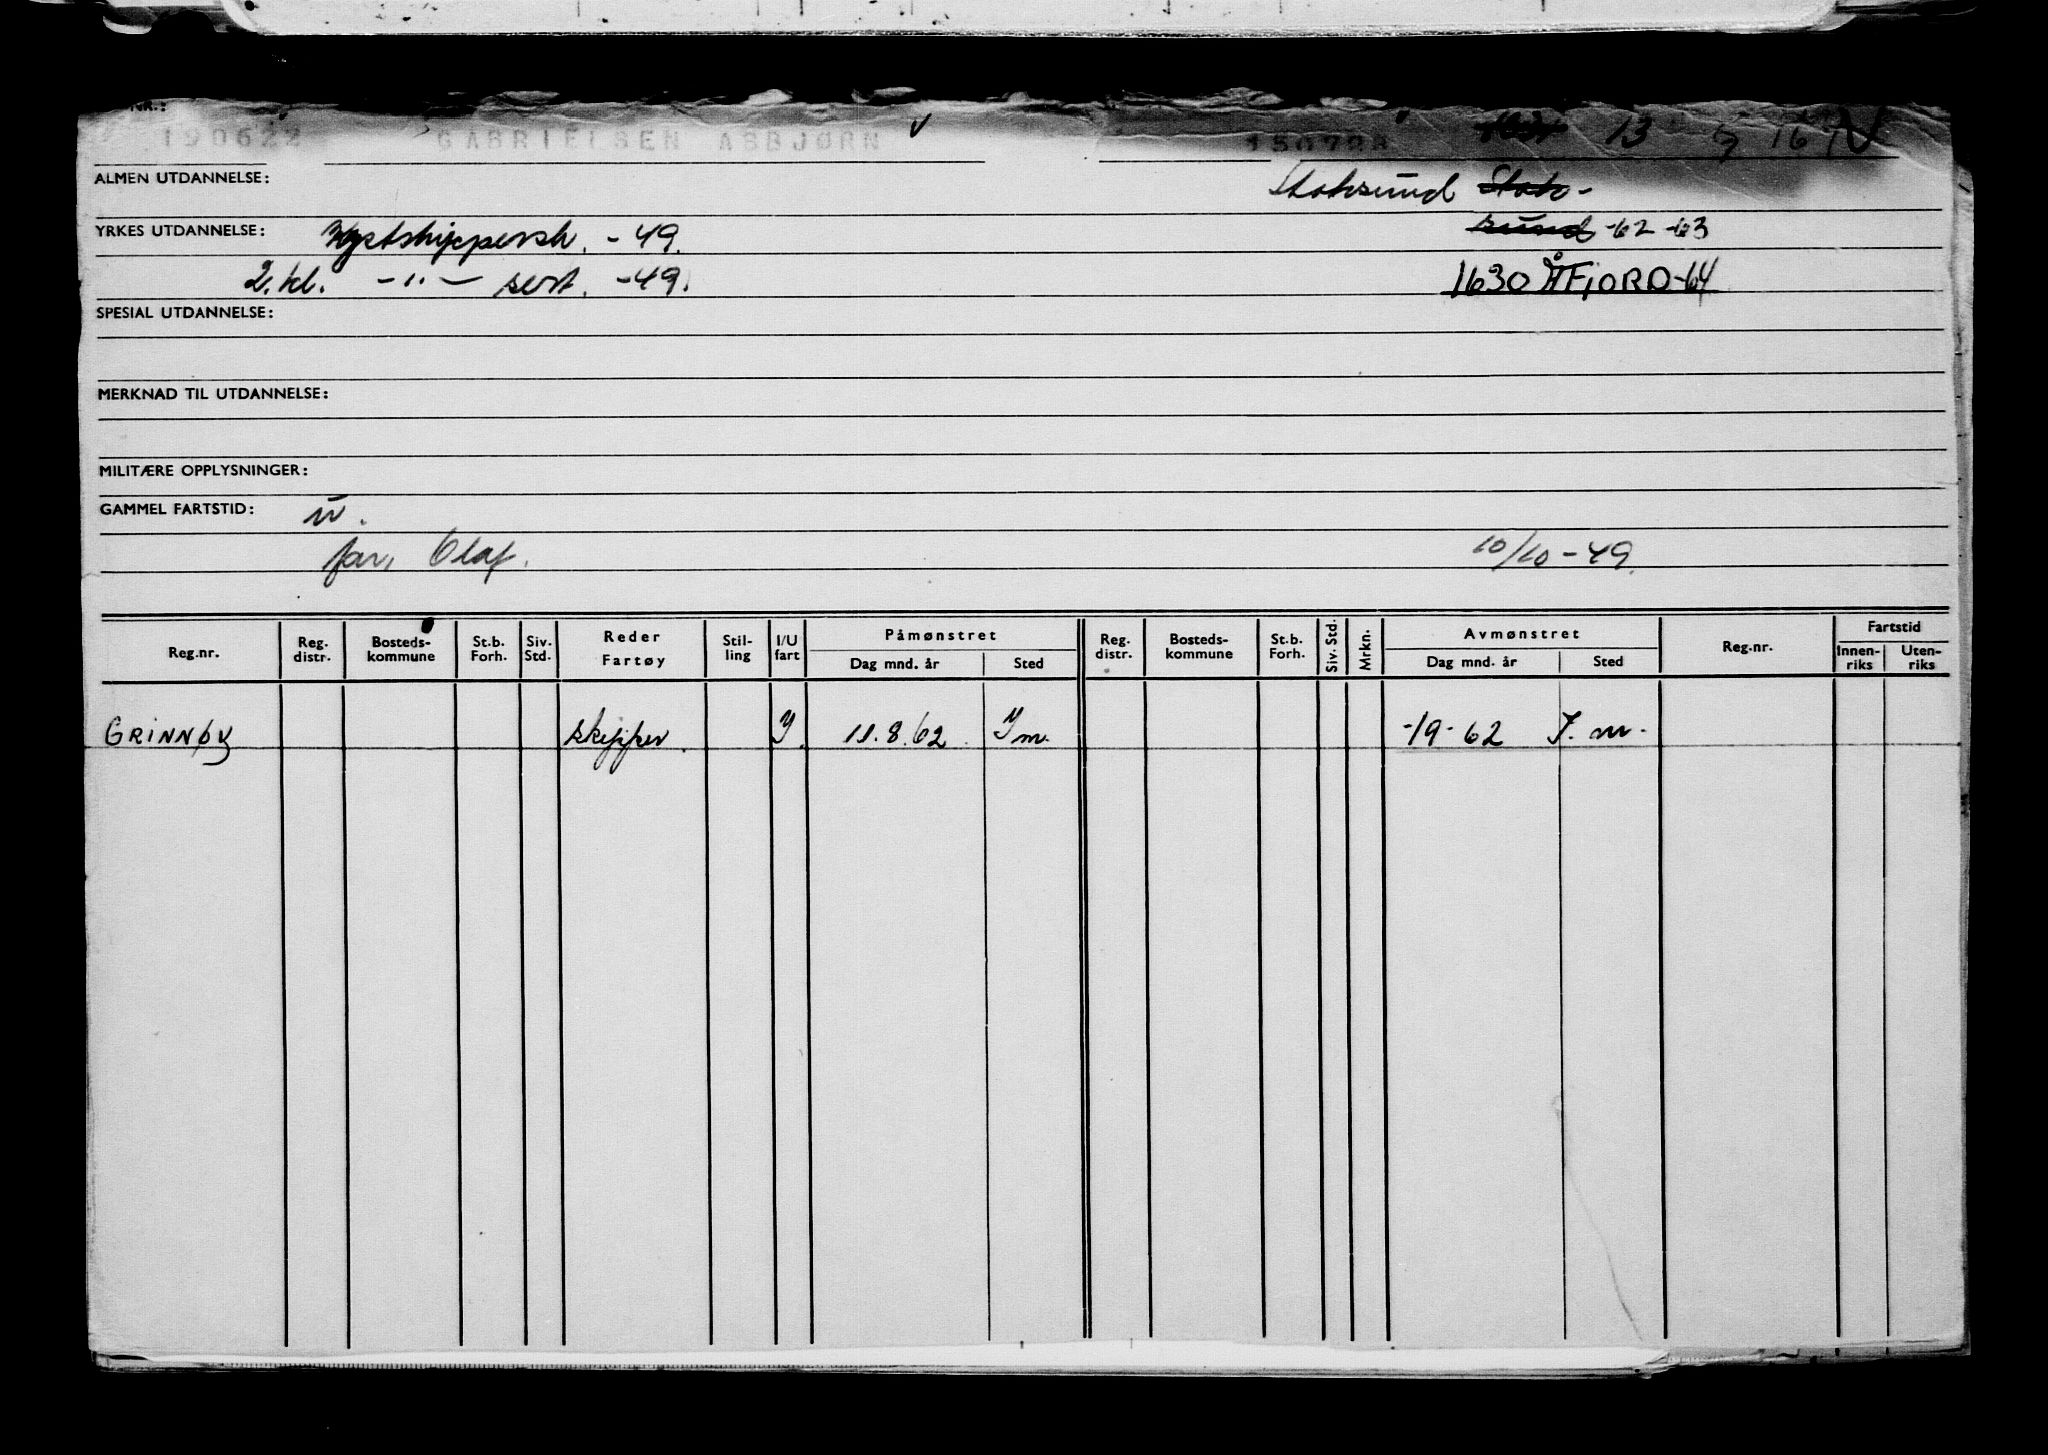 NR.:
190622 GABRIELSEN ASBJØRN 150728 13 16
ALMEN UTDANNELSE: Stoksund Stok-
sund -62 -63
YRKES UTDANNELSE: Kystskippersk. -49.
2. kl. -"- sert. -49. 1630 ÅFJORD -64
SPESIAL UTDANNELSE:
MERKNAD TIL UTDANNELSE:
MILITÆRE OPPLYSNINGER:
GAMMEL FARTSTID:
far, Olaf. 10/10-49.
Reg.nr. Reg. distr. Bosteds- kommune St.b. Forh. Siv. Std. Reder Fartøy Stil- ling I/U fart Påmønstret Dag mnd. år Sted Reg. distr. Bosteds- kommune St.b. Forh. Siv. Std. Mrkn. Avmønstret Dag mnd. år Sted Reg.nr. Fartstid Innen- riks Uten- riks
GRINNØY skipper. 11.8.62 -19-62